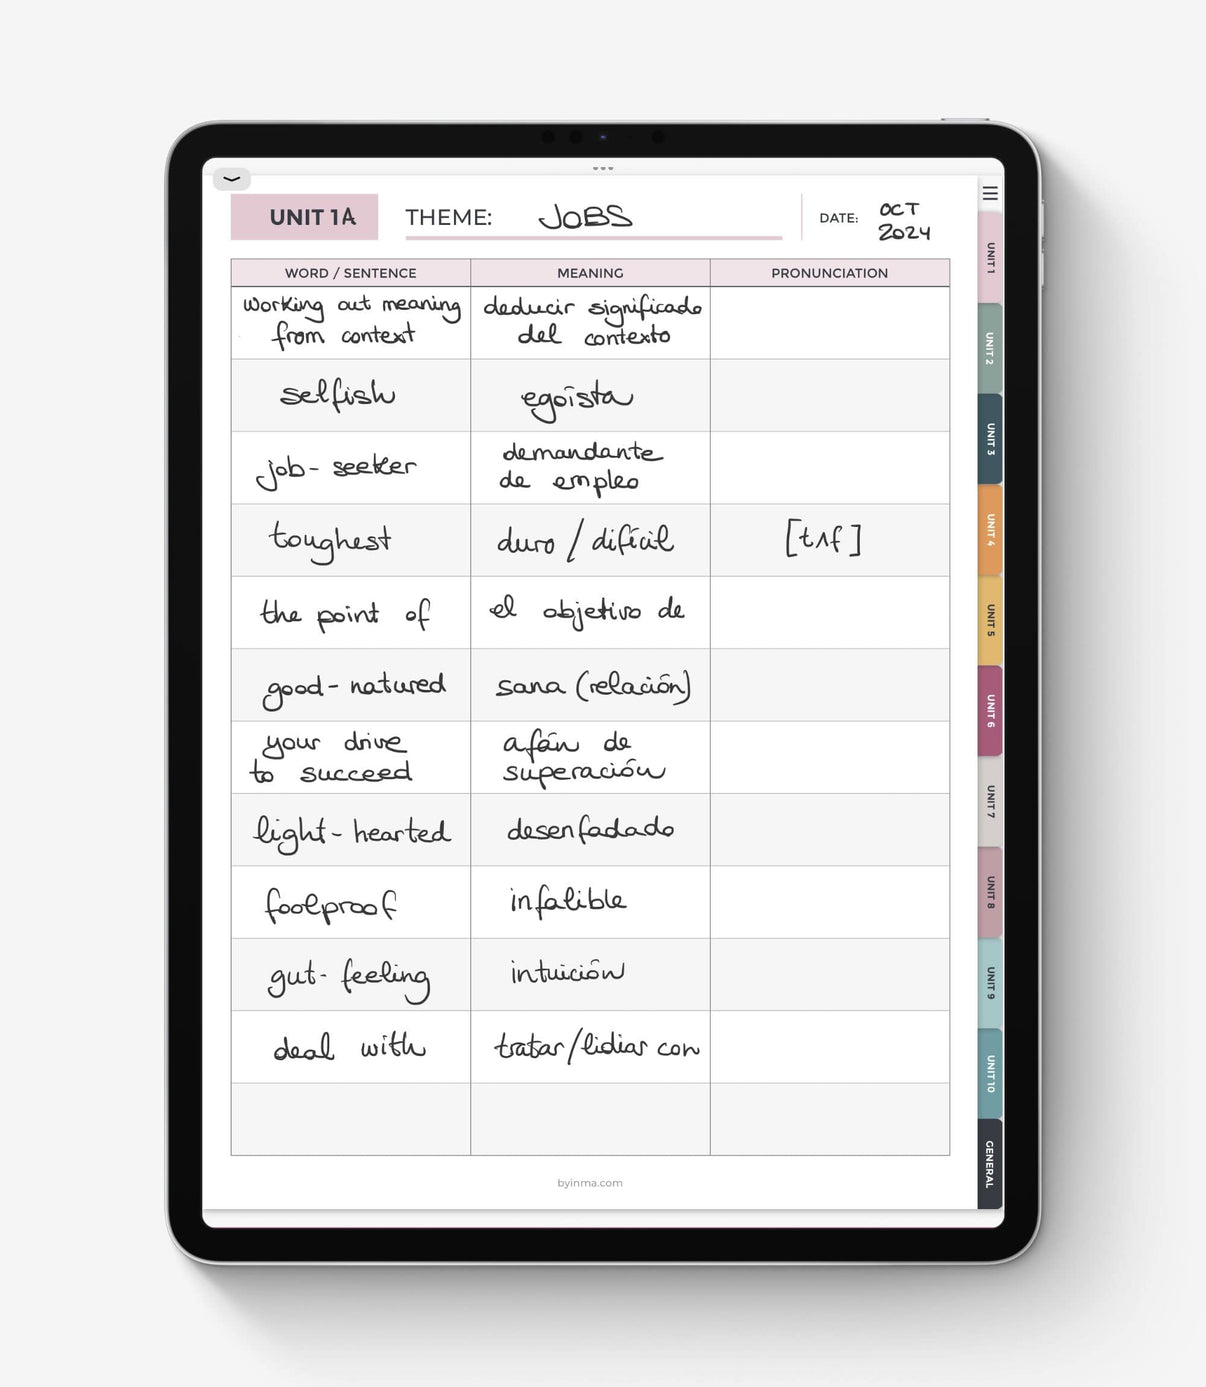 UNIT 1A
THEME: JOBS
DATE: OCT
2024
WORD / SENTENCE MEANING PRONUNCIATION
working out meaning
from context
deducir significado
del contexto
selfish egoísta
job-seeker
demandante
de empleo
toughest duro / difícil [tʌf]
the point of el objetivo de
good-natured sana (relación)
your drive
to succeed
afán de
superación
light-hearted desenfadado
foolproof infalible
gut-feeling intuición
deal with tratar/lidiar con
byinma.com
UNIT 1
UNIT 2
UNIT 3
UNIT 4
UNIT 5
UNIT 6
UNIT 7
UNIT 8
UNIT 9
UNIT 10
GENERAL